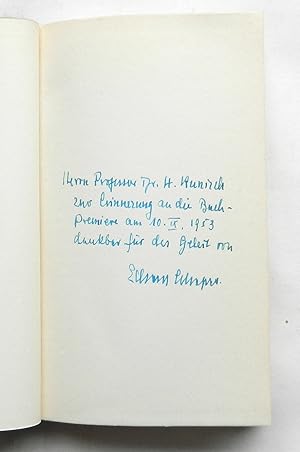 Herrn Professor Dr. H. Kunisch
zur Erinnerung an die Buch-
Premiere am 10. IX. 1953
dankbar für das Geleit von